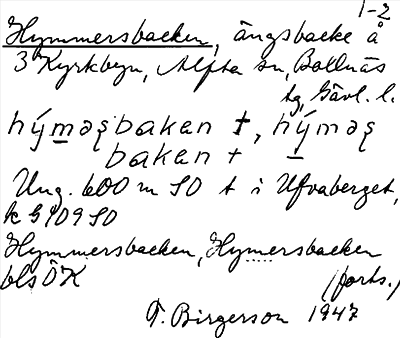 1-2
Hymmersbacken, ängsbacke å
3 Kyrkbyn, Alfta sn, Bollnäs
tg, Gävl. l.
hýmǝʂbakan †, hýmǝʂ
bakan †
Ung. 600 m SO t i Ufvaberget,
k G 109 SO
Hymmersbacken, Hymersbacken
bls ÖK
(forts.)
T. Birgerson 1947